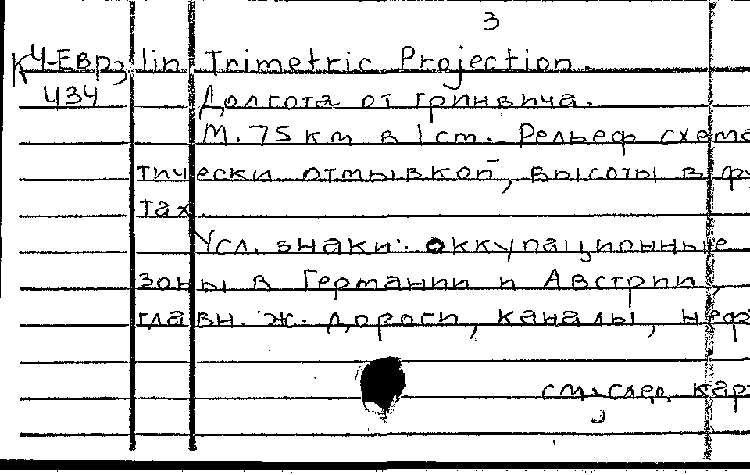 3
К4-Евр3 lin Trimetric Projection.
434 Долгота от Гринвича.
М. 75 км в 1 cm. Рельеф схема
тически отмывкой, высоты в фу
тах.
Усл. знаки: оккупационные
зоны в Германии и Австрии,
главн. ж. дороги, каналы, неф
см. след. кар